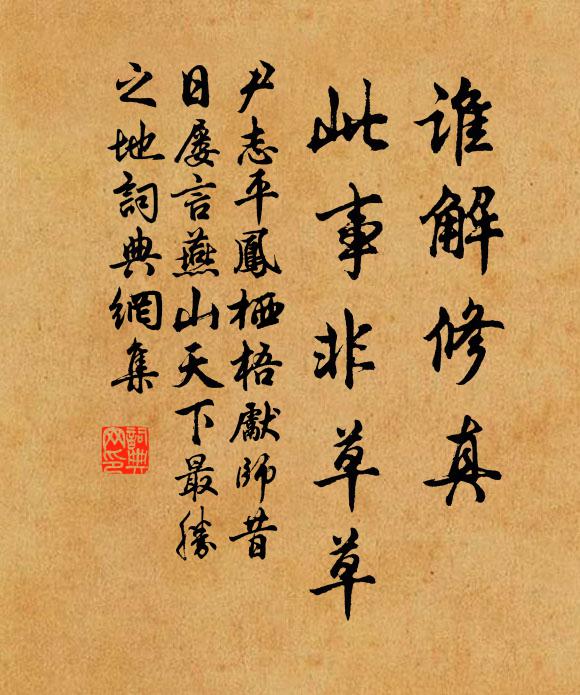 谁解修真
此事非草草
尹志平鳳栖梧獻師昔
日屡言燕山天下最勝
之地詞典網集
詞典
网印